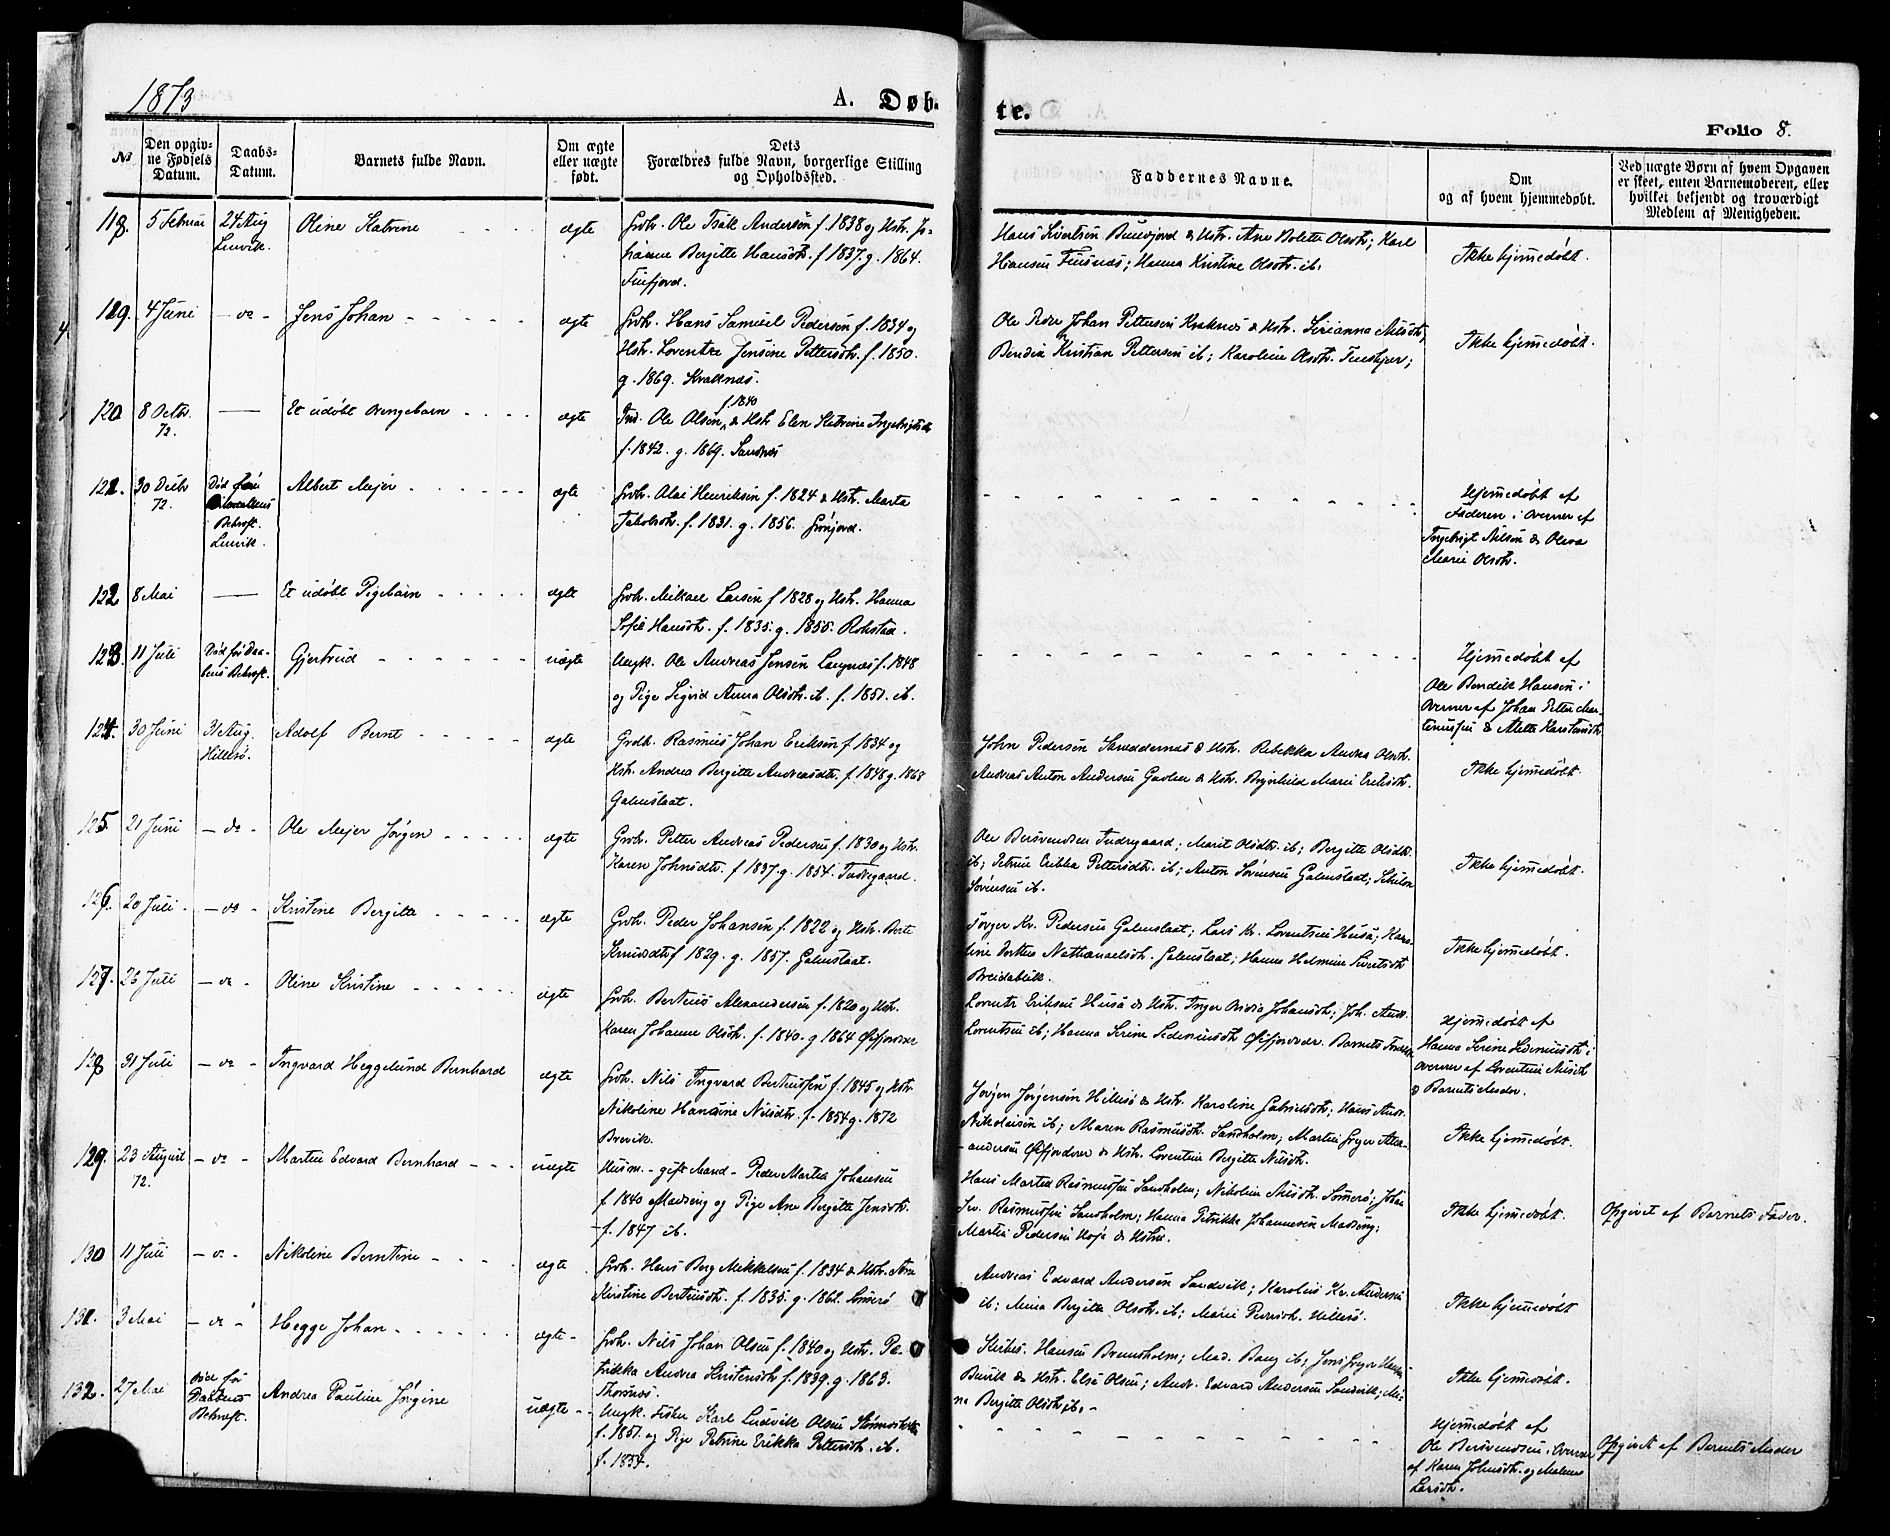 1873
A. Døb-
te.
Folio 8.
No
Den opgiv-
ne Fødsels
Datum.
Daabs-
Datum.
Barnets fulde Navn.
Om ægte
eller uægte
født.
Dets
Forældres fulde Navn, borgerlige Stilling
og Opholdssted.
Faddernes Navne.
Om
og af hvem hjemmedøbt.
Ved uægte Børn af hvem Opgaven
er skeet, enten Barnemoderen, eller
hvilket bekjendt og troværdigt
Medlem af Menigheden.
118. 5 Februar 24 Aug Lenvik. Oline Katrine ægte
Grdb. Ole Isak Andersen f. 1838 og Hstr. Jo-
hanne Bergitte Hansdtr. f. 1837. g. 1864.
Finfjord.
Hans Sivertsen & Hstr. Ane Bolette Olsdtr; Karl
Hansen Finsnes; Hanna Kristine Olsdtr. ib.
Ikke hjemmedøbt.
119. 4 Juni - do - Jens Johan ægte
Grdb. Hans Samuel Pedersen f. 1834 og
Hstr. Lorentze Jensine Pettersdtr. f. 1850.
g. 1869. Kraknes.
Ole Peder Johan Pettersen Kraknes & Hstr. Sirianna Nilsdtr;
Kristian Pettersen ib; Karoline Olsdtr.
Ikke hjemmedøbt.
120 8 Octbr. 72. Et udøbt Drengebarn ægte
Ind. Ole Olsen f. 1840 & Hstr Elen Katrine
f. 1842. g. 1869. Sandnes
121. 30 Decbr 72. Død før Bekræft. Lenvik. Albert Mejer ægte
Grdb. Olai Henriksen f. 1824 & Hstr. Marta
Jakobsdtr. f. 1831. g. 1856. Grønjord.
Hjemmedøbt af
Faderen i Overvær af
Ingebrigt Nilsen & Olava
Marie Olsdtr.
122 8 Mai Et udøbt Pigebarn ægte
Grdb. Mikael Larsen f 1828 og Hstr. Hanna
Sofie Hansdtr. f. 1835. g. 1855. Rokstad.
123. 11 Juli Død før Daa- bens Bekræft. Gjertrud uægte
Ungk. Ole Andreas Jensen Langnes f. 1848
og Pige Sigrid Anna Olsdtr. ib. f. 1851. ib.
Hjemmedøbt af
Ole Bendik Hansen i
Overvær af Johan Peter Mar-
tinussen & Mette Karstansdtr
124. 30 Juni 31 Aug. Hillesø. Adolf Bernt ægte
Grdb. Rasmus Johan Eriksen f. 1834 og
Hstr. Andrea Bergitte Andreasdtr. f. 1848 g. 1868
Galmslaat.
John Pedersen & Hstr. Rebekka Andrea Olsdtr.
Andreas Anton Andersen & Hstr. Brynhild Marie Eriksdtr.
Ikke hjemmedøbt.
125. 21 Juni - do - Ole Mejer Jørgen ægte
Grdb. Petter Andreas Pedersen f. 1830 og Hstr.
Karen Johnsdtr. f 1837. g. 1854. Indregaard.
Ole Bersvendsen Indregaard; Marit Olsdtr. ib; Bergitte Olsdtr.
ib; Petrine Erikka Pettersdtr. ib; Anton Sørensen Galmslaat;
Sørensen ib.
Ikke hjemmedøbt.
126. 20 Juli - do - Kristine Bergitte ægte
Grdb. Peder Johansen f. 1822 og Hstr. Berte
Knudsdtr f 1829. g. 1857. Galmslaat.
Jørger Kr. Pedersen Galmslaat; Lars Kr. Lorentsen Huså; Karo-
line Nathanaelsdtr. Galmslaat; Hanna Helmine Sivertsdtr
Breidablik.
Ikke hjemmedøbt.
127. 26 Juli - do - Oline Kristine ægte
Grdb. Berteus Alexandersen f. 1820 og Hstr.
Karen Johanne Olsdtr. f. 1840. g 1864 Øifjordvær
Lorents Eriksen Huså & Hstr. Inger Johansdtr; Joh. Andr.
Lorentsen ib; Hanna Serine Sedeniusdtr Øifjordvær. Barnets Forældre
Hjemmedøbt af
Hanna Serine Sedeniusdtr i
Overvær af Lorentine Nilsdtr
& Barnets Moder.
128 31 Juli - do - Ingvard Heggelund Bernhard ægte
Grdb. Nils Ingvard Berteussen f. 1845 og Hstr.
Nikoline Hansine Nilsdtr. f. 1854 g. 1872
Brevik.
Jørgen Jørgensen Hillesø & Hstr. Karoline Gabrielsdtr; Hans Andr.
Nikolaisen ib; Maren Rasmusdtr. Sandholm; Martin Greger Alex-
andersen Øifjordvær & Hstr. Lorentine Bergitte Nilsdtr.
Ikke hjemmedøbt.
129. 23 August 72. - do - Martin Edvard Bernhard uægte
Husm. - gift Mand - Peder Martin Johansen
f. 1840 Madseng og Pige Ane Bergitte Jensdtr.
f. 1847 ib.
Hans Martin Rasmussen Sandholm; Nikoline Nilsdtr. Sommerø; Johan
Rasmussen Sandholm; Hanna Petrikke Johannesen Madseng;
Martin Pedersen & Hstru.
Ikke hjemmedøbt. Opgivet af Barnets Fader.
130 11 Juli - do - Nikoline Berntine ægte
Grdb. Hans Berg Mikkelsen f. 1834 & Hstr. Ane
Kirstine Berteusdtr. f. 1835. g. 1861. Sommerø
Andreas Edvard Andersen Sandvik; Karolius Kr. Andersen
ib; Mina Bergitte Olsdtr. ib; Marie Pedersdtr. Hillesø.
Ikke hjemmedøbt
131. 3 Mai - do - Hegge Johan ægte
Grdb. Nils Johan Olsen f. 1840 og Hstr. Pe-
trikka Andrea Kristensdtr f. 1839. g. 1863.
Hansen Bremsholm; Mad. Bang ib; Jens Greger Hansen
& Hstr. Else Olsen; Andr. Edvard Andersen Sandvik; Mi-
na Bergitte Olsdtr. ib.
Ikke hjemmedøbt.
132. 27 Mai Død før Daabens Bekræft. Andrea Pauline Jørgine uægte
Ungk. Fisker Karl Ludvik Olsen
f. 1851. og Pige Petrine Erikka Pettersdtr. ib.
f. 1854.
Hjemmedøbt af
Ole Bersvendsen i Overvær
af Karen Johnsdtr. og Malene
Larsdtr.
Opgivet af Barnets Moder